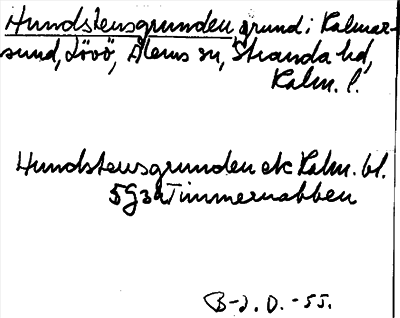 Hundstensgrunden grund i Kalmar-
sund, Lövö, Ålems sn, Stranda hd,
Kalm. l.
Hundstensgrunden ek Kalm. bl.
5G3a Timmernabben
B-J. O. -55.